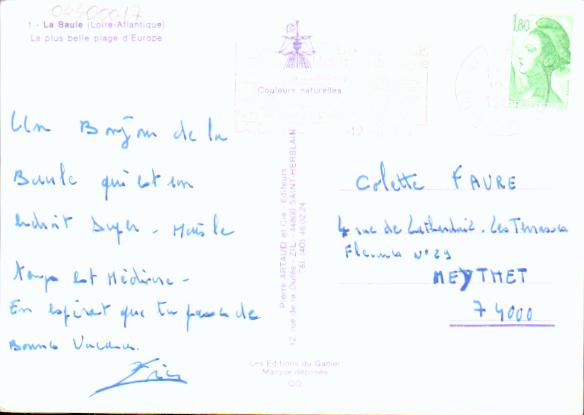 04400017
1 - La Baule (Loire-Atlantique)
La plus belle plage d'Europe
Couleurs naturelles
1,80
Un Bonjour de la
Baule qui est un
endroit Super - Mais le
temps est Médiocre -
En espérant que tu passe de
Bonnes Vacances.
Eric
Pierre ARTAUD et Cie - Editeurs
12, rue de la Durée - ZIL - 44800 SAINT-HERBLAIN
Tél. (40) 46.02.24
Les Editions du Gabier
Marque déposée
Colette FAURE
4 rue de Les Terrasses
N° 29
MEYTHET
74000